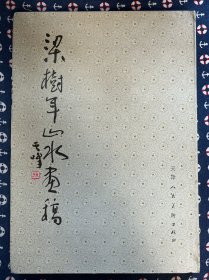 梁樹年山水畫稿
天津人民美術出版社